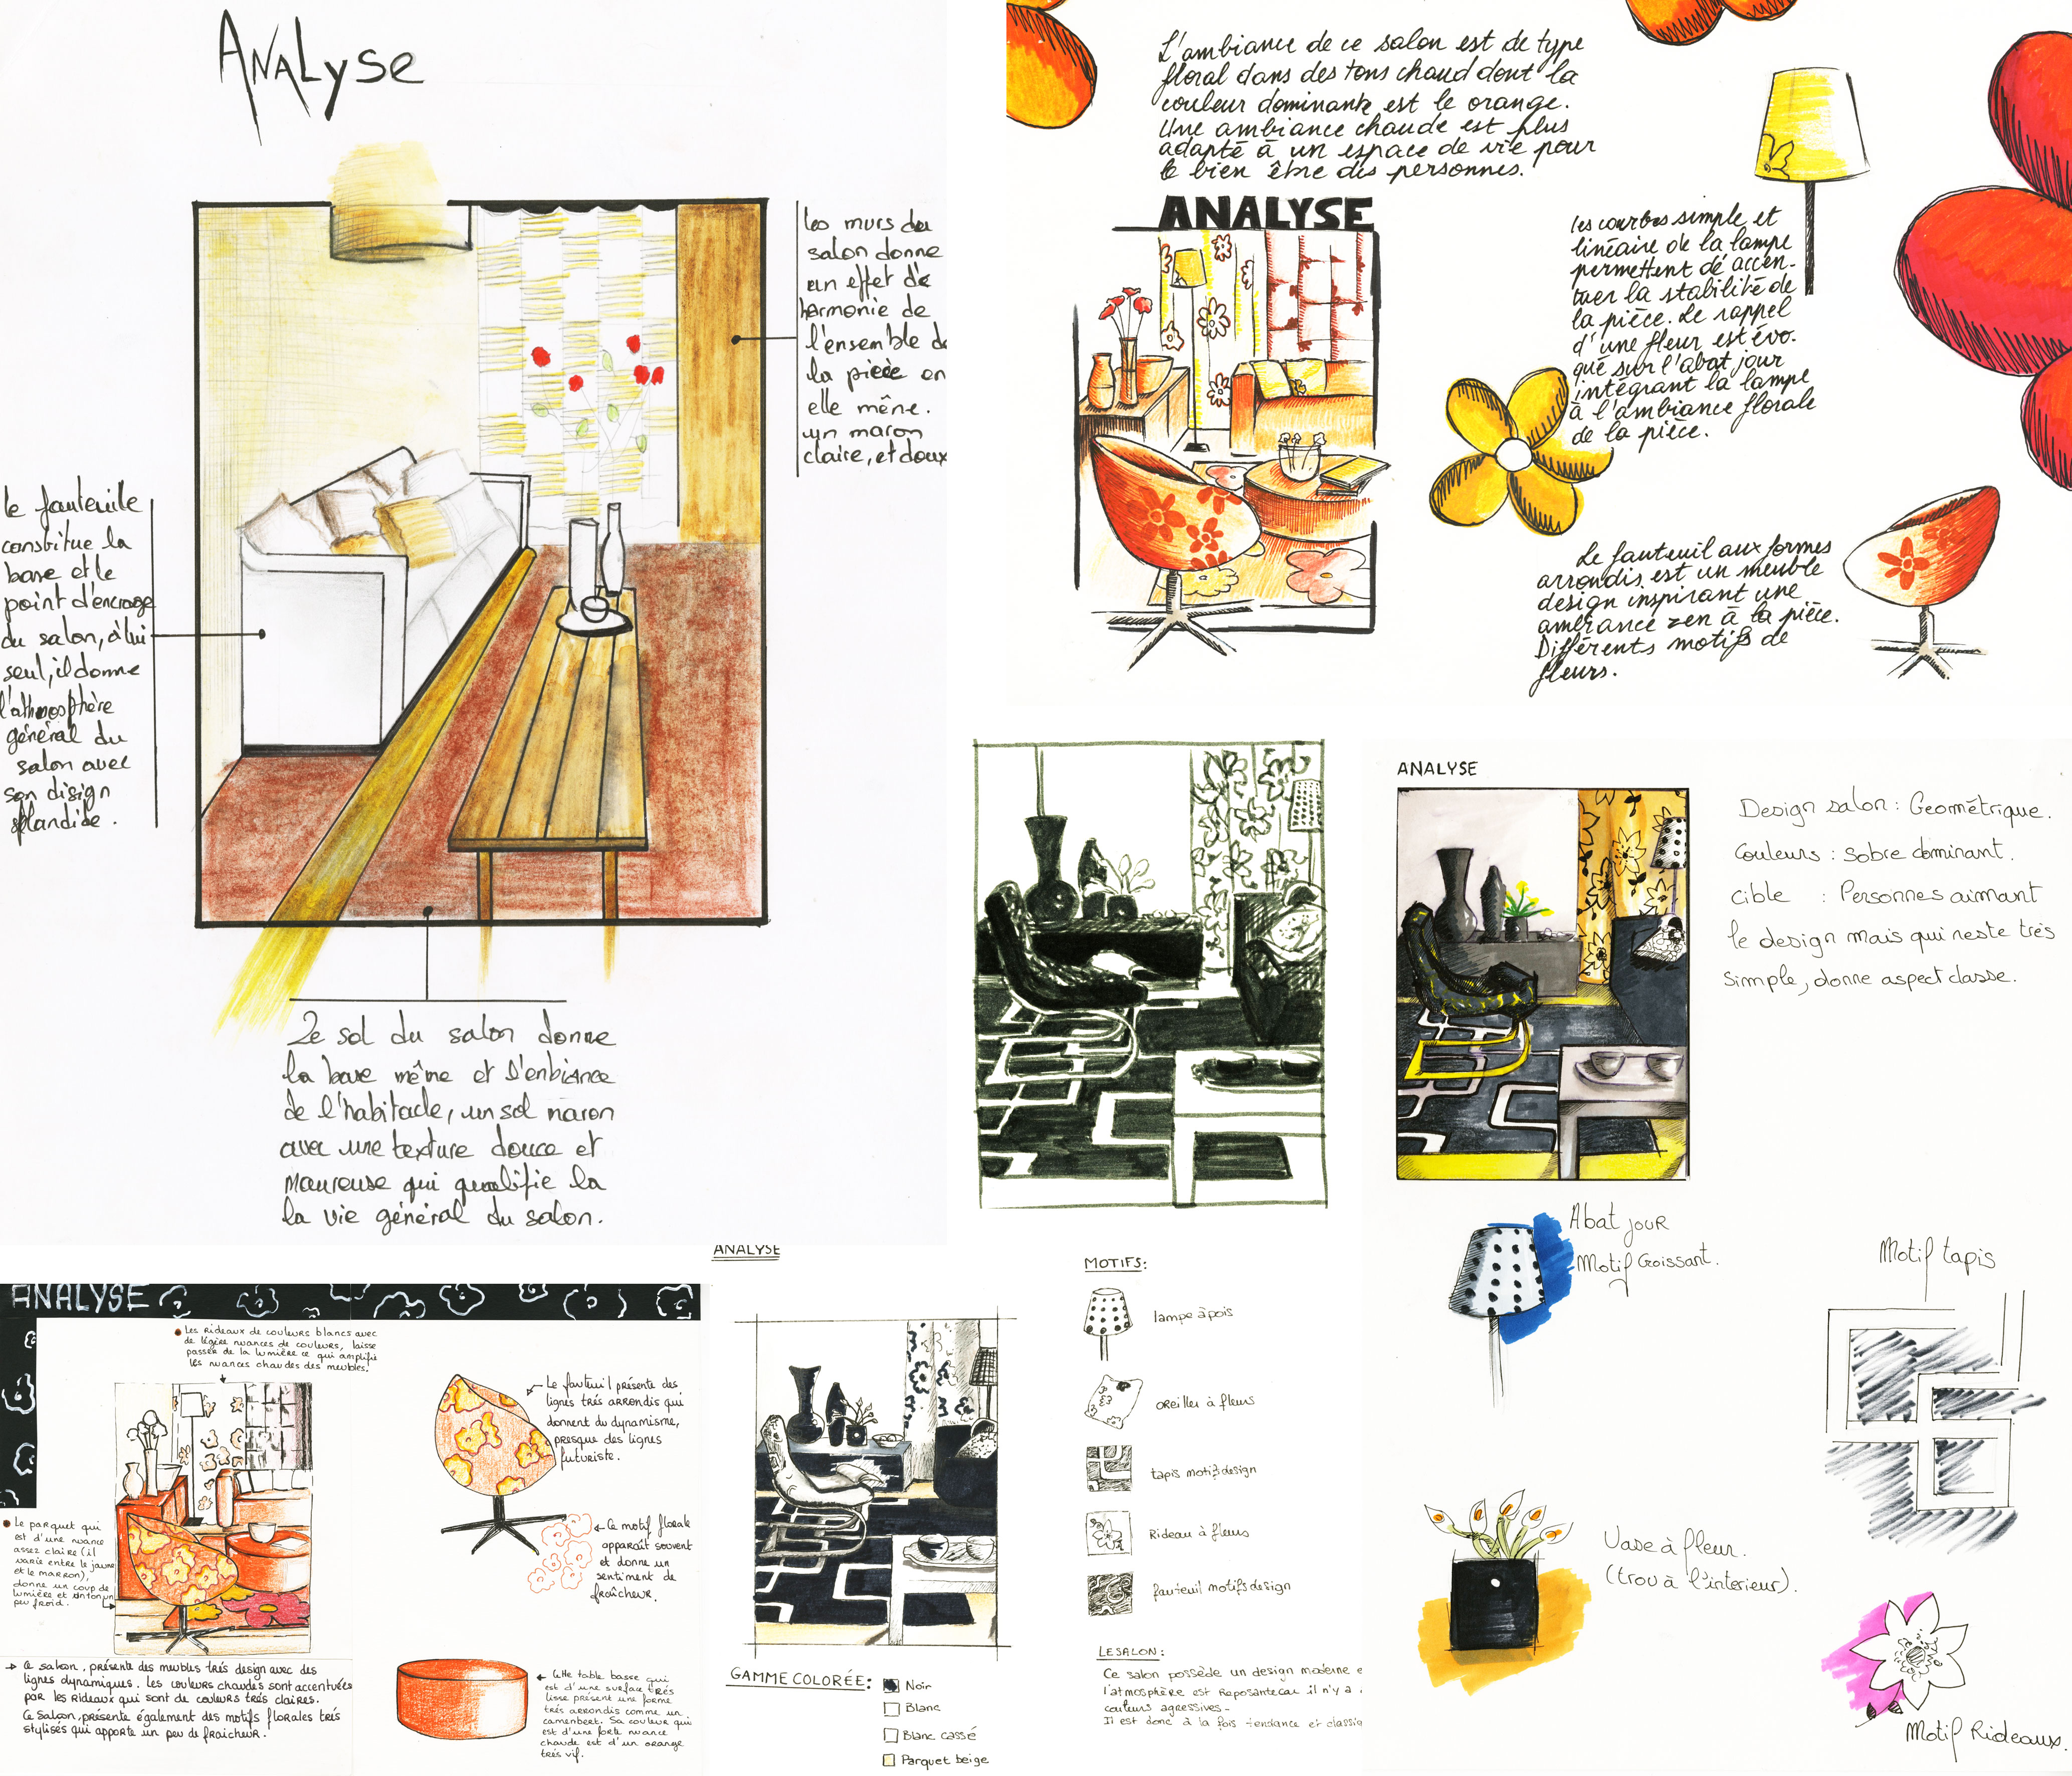 Analyse
les murs du
salon donne
un effet de
harmonie de
l'ensemble de
la pièce en
elle même.
un maron
claire, et doux
le fauteuile
constitue la
base et le
point d'encrage
du salon, à lui
seul, il donne
l'athmosphère
général du
salon avec
son disign
splandide.
Le sol du salon donne
la base même et d'enbiance
de l'habitacle, un sol maron
avec une texture douce et
qui qualifie la
la vie général du salon.
L'ambiance de ce salon est de type
floral dans des tons chaud dont la
couleur dominante est le orange.
Une ambiance chaude est plus
adapté à un espace de vie pour
le bien être des personnes.
ANALYSE
les courbes simple et
linéaire de la lampe
permettent dé accen-
tuer la stabilité de
la pièce. Le rappel
d'une fleur est évo-
qué sur l'abat jour
intégrant la lampe
à l'ambiance florale
de la pièce.
Le fauteuil aux formes
arrondis, est un meuble
design inspirant une
ambiance zen à la pièce.
Différents motifs de
fleurs.
ANALYSE
Design salon : Géométrique.
Couleurs : Sobre dominant.
cible : Personnes aimant
le design mais qui reste très
simple, donne aspect classe.
Abat jour
Motif Croissant.
Motif tapis
Vase à fleur.
(trou à l'interieur).
Motif Rideaux.
ANALYSE
Les Rideaux de couleurs blancs avec
de légère nuances de couleurs, laisse
passer de la lumière ce qui amplifie
les nuances chaudes des meubles.
Le fauteuil présente des
lignes trés arrondis qui
donnent du dynamisme,
presque des lignes
futuriste.
Ce motif florale
apparaît souvent
et donne un
sentiment de
fraîcheur.
Le parquet qui
est d'une nuance
assez claire (il
varie entre le jaune
et le marron),
donne un coup de
lumière et un ton un
peu froid.
Ce salon, présente des meubles trés design avec des
lignes dynamiques. Les couleurs chaudes sont accentuées
par les rideaux qui sont de couleurs trés claires.
Ce Salon, présente également des motifs florales trés
stylisés qui apporte un peu de fraicheur.
Cette table basse qui
est d'une surface trés
lisse présent une forme
trés arrondis comme un
camenbert. Sa couleur qui
est d'une forte nuance
chaude est d'un orange
trés vif.
ANALYSE
GAMME COLORÉE:
Noir
Blanc
Blanc cassé
Parquet beige
MOTIFS:
lampe à pois
oreiller à fleurs
tapis motif design
Rideau à fleurs
fauteuil motifs design
LE SALON:
Ce salon possède un design moderne e
l'atmosphère est reposante car il n'y a
couleurs agressives.
Il est donc à la fois tendance et classiq